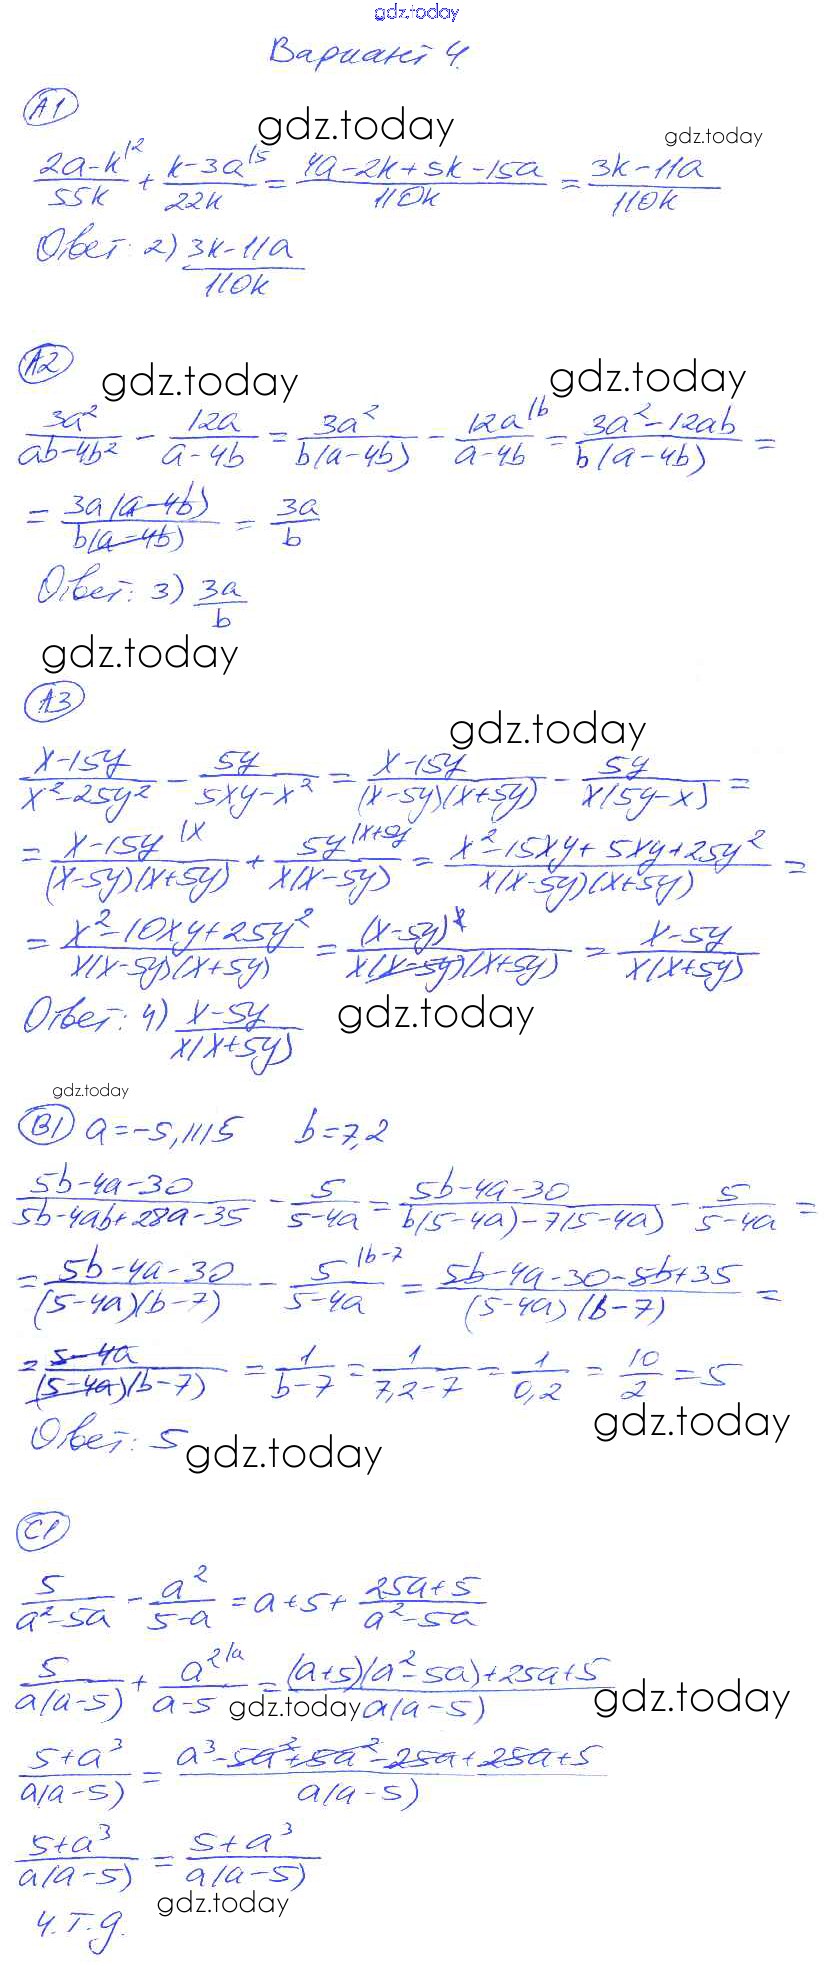 gdz.today
Вариант 4.
А1
gdz.today
gdz.today
(2a-k)/(55k) |2 + (k-3a)/(22k) |5 = (4a-2k+5k-15a)/(110k) = (3k-11a)/(110k)
Ответ: 2) (3k-11a)/(110k)
А2
gdz.today
gdz.today
3a²/(ab-4b²) - 12a/(a-4b) = 3a²/(b(a-4b)) - 12a/(a-4b) |b = (3a²-12ab)/(b(a-4b)) =
= 3a(a-4b)/(b(a-4b)) = 3a/b
Ответ: 3) 3a/b
gdz.today
А3
gdz.today
(x-15y)/(x²-25y²) - 5y/(5xy-x²) = (x-15y)/((x-5y)(x+5y)) - 5y/(x(5y-x)) =
= (x-15y)/((x-5y)(x+5y)) |x + 5y/(x(x-5y)) |x+5y = (x²-15xy+5xy+25y²)/(x(x-5y)(x+5y)) =
= (x²-10xy+25y²)/(x(x-5y)(x+5y)) = (x-5y)²/(x(x-5y)(x+5y)) = (x-5y)/(x(x+5y))
Ответ: 4) (x-5y)/(x(x+5y))
gdz.today
gdz.today
В1 a=-5,1115 b=7,2
(5b-4a-30)/(5b-4ab+28a-35) - 5/(5-4a) = (5b-4a-30)/(b(5-4a)-7(5-4a)) - 5/(5-4a) =
= (5b-4a-30)/((5-4a)(b-7)) - 5/(5-4a) |b-7 = (5b-4a-30-5b+35)/((5-4a)(b-7)) =
= (5-4a)/((5-4a)(b-7)) = 1/(b-7) = 1/(7,2-7) = 1/0,2 = 10/2 = 5
Ответ: 5
gdz.today
gdz.today
С1
5/(a²-5a) - a²/(5-a) = a+5+ (25a+5)/(a²-5a)
5/(a(a-5)) + a²/(a-5) |a = ((a+5)(a²-5a)+25a+5)/(a(a-5))
gdz.today
gdz.today
(5+a³)/(a(a-5)) = (a³-5a²+5a²-25a+25a+5)/(a(a-5))
(5+a³)/(a(a-5)) = (5+a³)/(a(a-5))
gdz.today
ч.т.д.